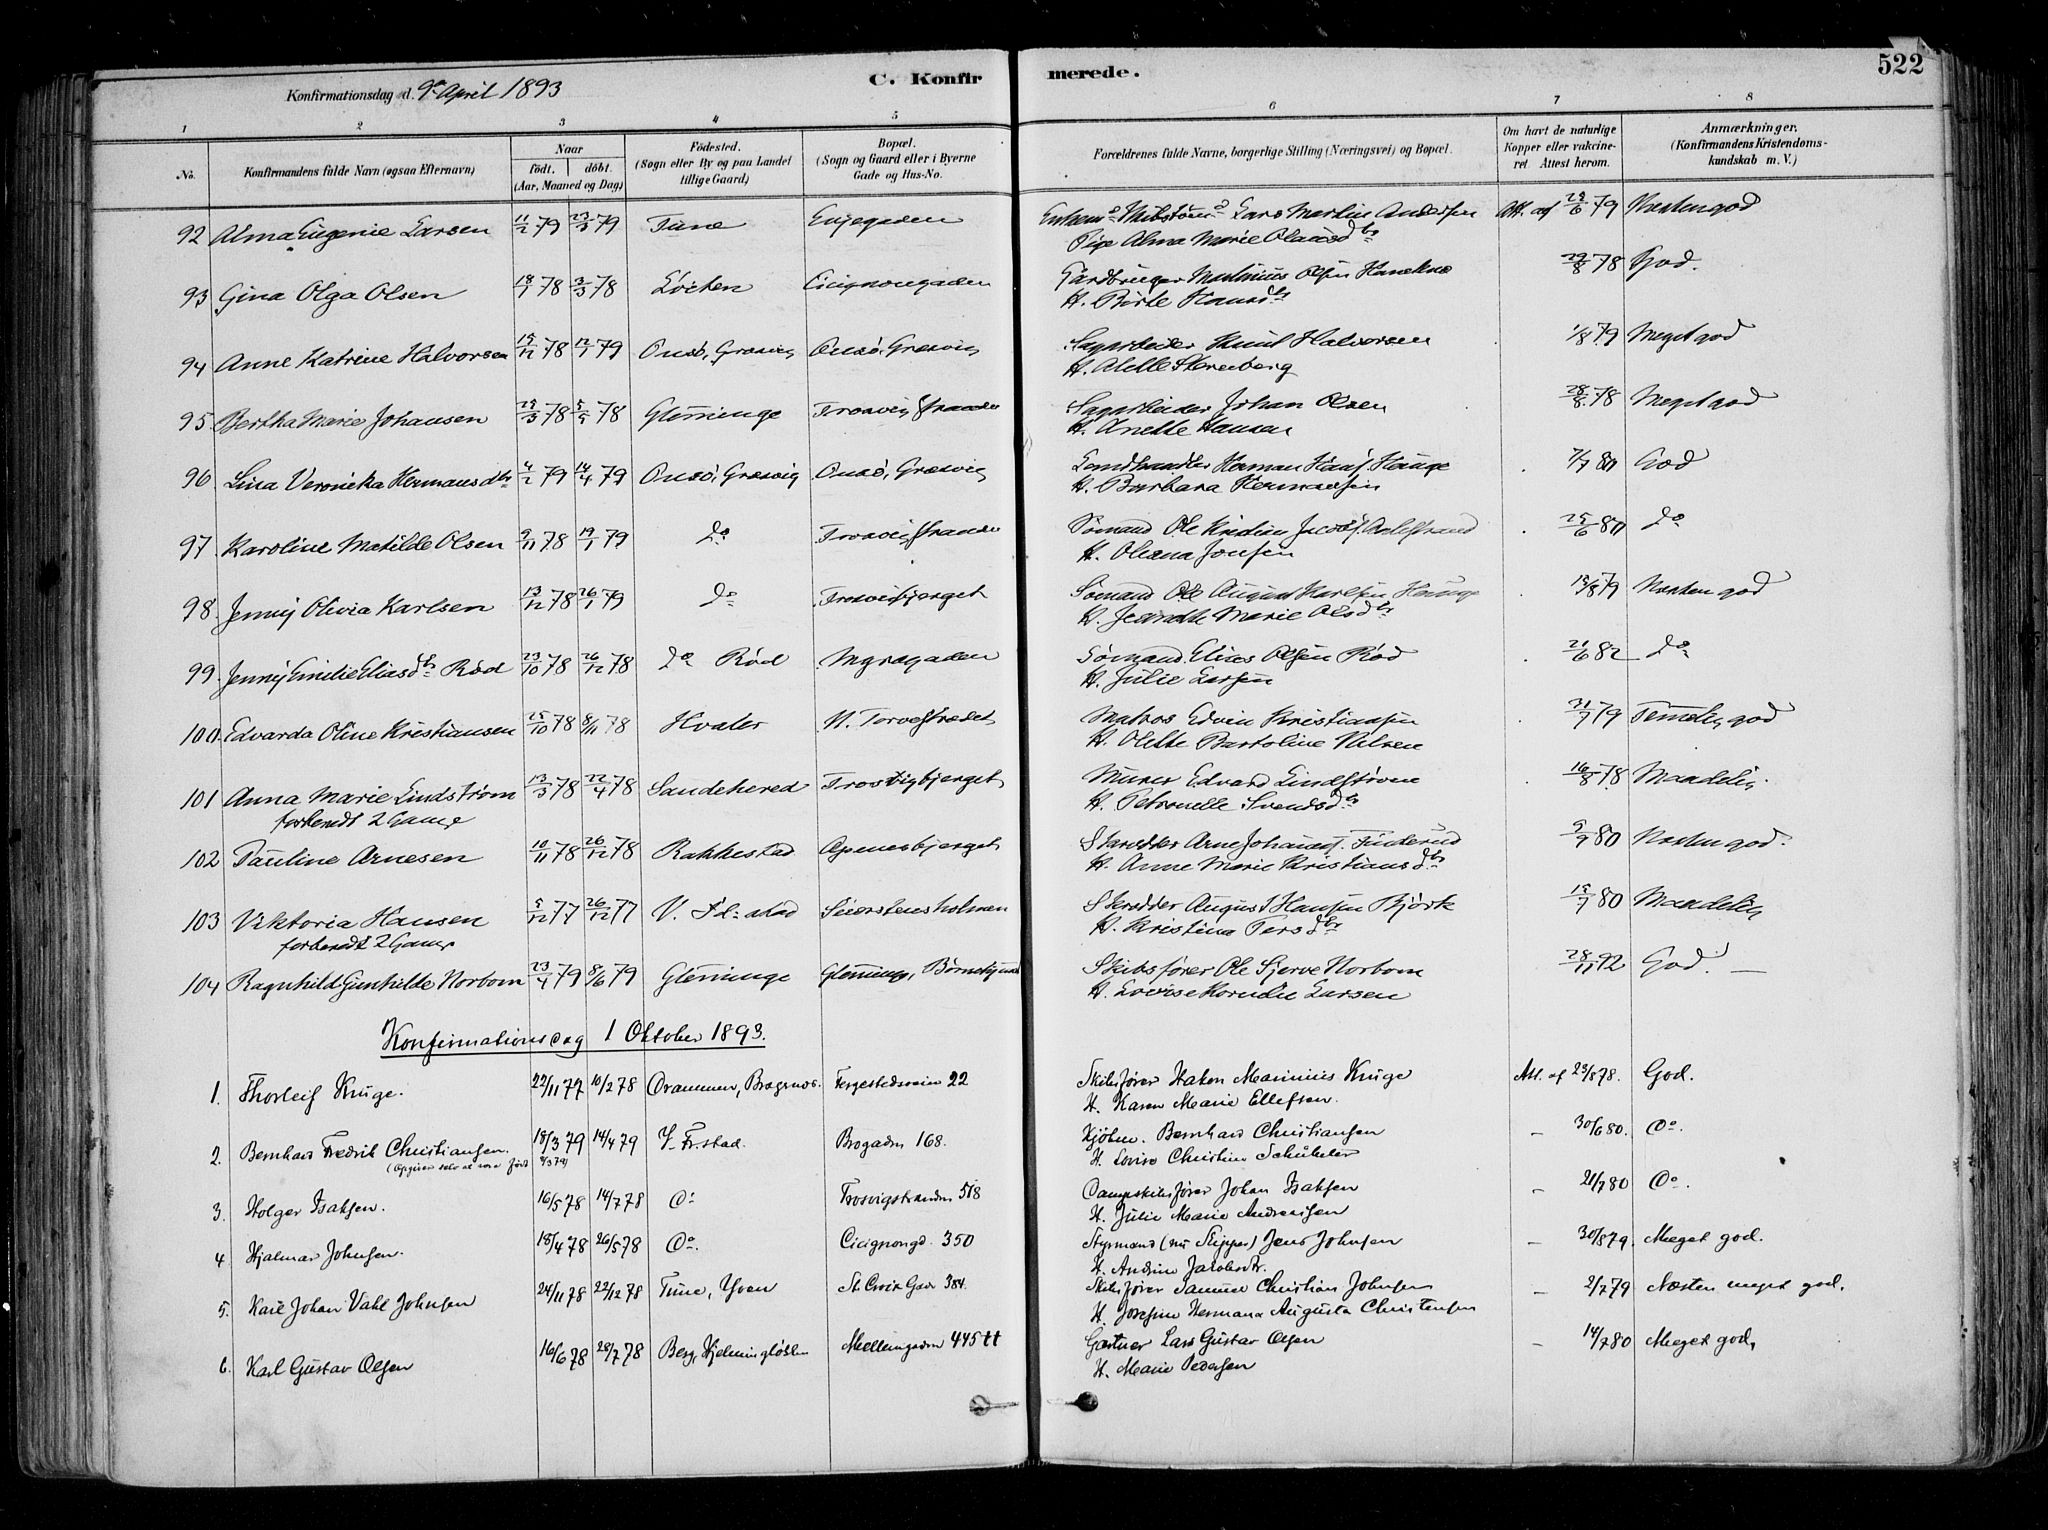 Konfirmationsdag d. 9de April 1893
C. Konfirmerede.
522
1 2 3 4 5 6 7 8
No.
Konfirmandens fulde Navn (ogsaa Efternavn)
Naar født. døbt. (Aar, Maaned og Dag)
Fødested. (Sogn eller By og paa Landet tillige Gaard)
Bopæl. (Sogn og Gaard eller i Byerne Gade og Hus-No.
Forældrenes fulde Navne, borgerlige Stilling (Næringsvei) og Bopæl.
Om havt de naturlige Kopper eller vaccineret Attest herom.
Anmærkninger. (Konfirmandens Kristendomskundskab m. V.)
92 Alma Eugenie Larsen 11/2 79 23/3 79 Tune Enjegaden Lars Martin Andersen Att. af 24/6 79 Næsten god
Pige Alma Marie Olausdtr
93 Gina Olga Olsen 18/1 78 3/3 78 Løiten Cicignongaden Gårdbruger Martinius Olsen 29/8 78 God.
H. Birte Hansdtr
94 Anne Katrine Halvorsen 15/12 78 12/1 79 Onsø, Græsvig Onsø, Græsvig Sagarbeider Knut Halvorsen 1/8 79 Meget god
H. Alette Stenberg
95 Bertha Marie Johansen 29/3 78 5/5 78 Glemminge Trosvigstranden Sagarbeider Johan Olsen 28/8 78 Meget god
H. Anette Hansen
96 Lina Veronika Hermansdtr 4/2 79 14/4 79 Onsø, Græsvig Onsø, Græsvig Landhandler Herman Hans. Hauge 7/7 80 God
H. Barbara Hermansen
97 Karoline Matilde Olsen 9/11 78 19/1 79 Do Trosvigstranden Sømand Ole Kristian Jacobs. 25/6 80 Do
H. Oleana Jonsen
98 Jenny Olivia Karlsen 13/12 78 26/1 79 Do Trosvigbjerget Sømand Ole August Karlsen Hauge 13/8 79 Næsten god
H. Jeanette Marie Olsdtr
99 Jenny Emilie Eliasdtr Rød 23/10 78 26/12 78 Do Rød Nygaden Sømand Elias Olsen Rød 21/6 82 Do
H. Julie Larsen
100 Edvarda Oline Kristiansen 25/10 78 8/11 78 Hvaler N. Torvestrædet Matros Edvin Kristiansen 31/7 79 Temmelig god
H. Olette Bartoline Nilsen
101 Anna Marie Lindstrøm 13/3 78 22/4 78 Sandehered Trosvigbjerget Murer Edvard Lindstrøm 16/8 78 Maadelig.
forberedt 2 Gange H. Petronelle Svendsdtr
102 Pauline Arnesen 10/11 78 26/12 78 Rakkestad Apenesbjerget Skrædder Arne Johanes. 9/9 80 Næsten god.
H. Anne Marie Kristiansdtr
103 Viktoria Hansen 5/12 77 26/12 77 V. Fd:stad Seierstensholmen Skrædder August Hansen Bjørk 15/7 80 Maadelig
forberedt 2 Gange H. Kristina Persdtr
104 Ragnhild Gunhilde Norbom 23/4 79 8/6 79 Glemminge Glemminge, Skibsfører Ole Sjerve Norbom 28/11 92 God. —
H. Lovise Kornelie Larsen
Konfirmationsdag 1 Oktober 1893.
1. Thorleif Kruge. 22/11 77 10/2 78 Drammen, Bragenæs. Fergestedsveien 22 Skibsfører Haken Marinius Kruge Att. af 23/8 78. God.
H. Karen Marie Ellefsen.
2. Bernhard Fredrik Christiansen. 18/3 79 14/4 79 V. Fr.stad. Brogaden 168. Kjøbm. Bernhard Christiansen – 30/6 80. Do.
(Opgives selv at være født 8/3 79) H. Lovise Christine Schübeler
3. Holger Isaksen. 16/5 78 14/7 78 Do Trosvigstranden 518 Dampskibsfører Johan Isaksen – 21/7 80 Do.
H. Julie Marie Andreassen
4 Hjalmar Johnsen. 18/4 78 26/5 78 Do. Cicignongd. 350 Styrmand (nu Skipper) Jens Johnsen – 30/8 79. Meget god.
H. Andrine Jacobsdtr.
5. Karl Johan Vahl Johnsen 24/11 78 22/12 78 Tune, Yven St. Croix Gade 384. Skibsfører Samuel Christian Johnsen – 2/7 79 Næsten meget god.
H. Josefine Hermana Augusta Christensen
6. Karl Gustav Olsen 16/6 78 28/7 78 Berg, Møllengaden 445 tt Gartner Lars Gustav Olsen – 14/7 80 Meget god,
H. Marie Pedersen